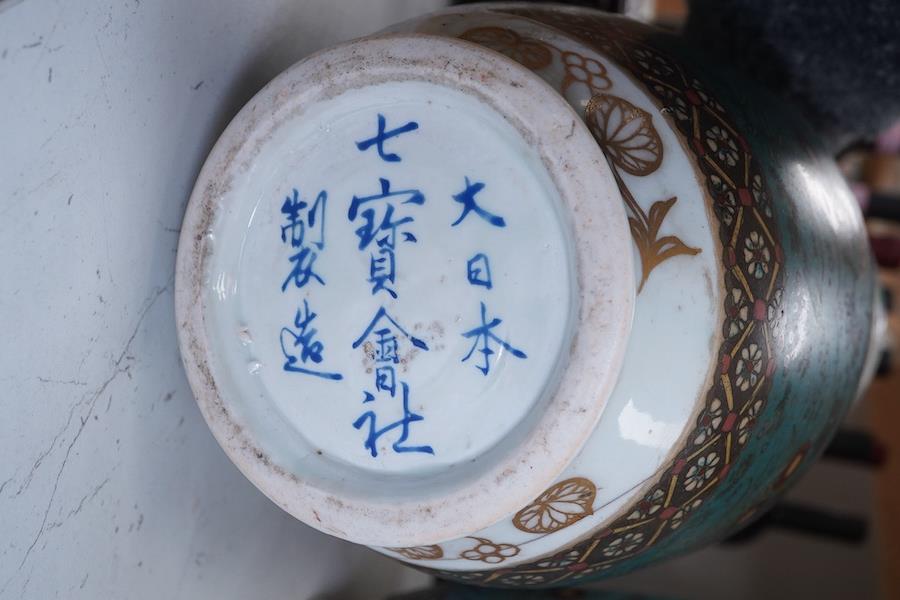 大日本
七寶會社
製造